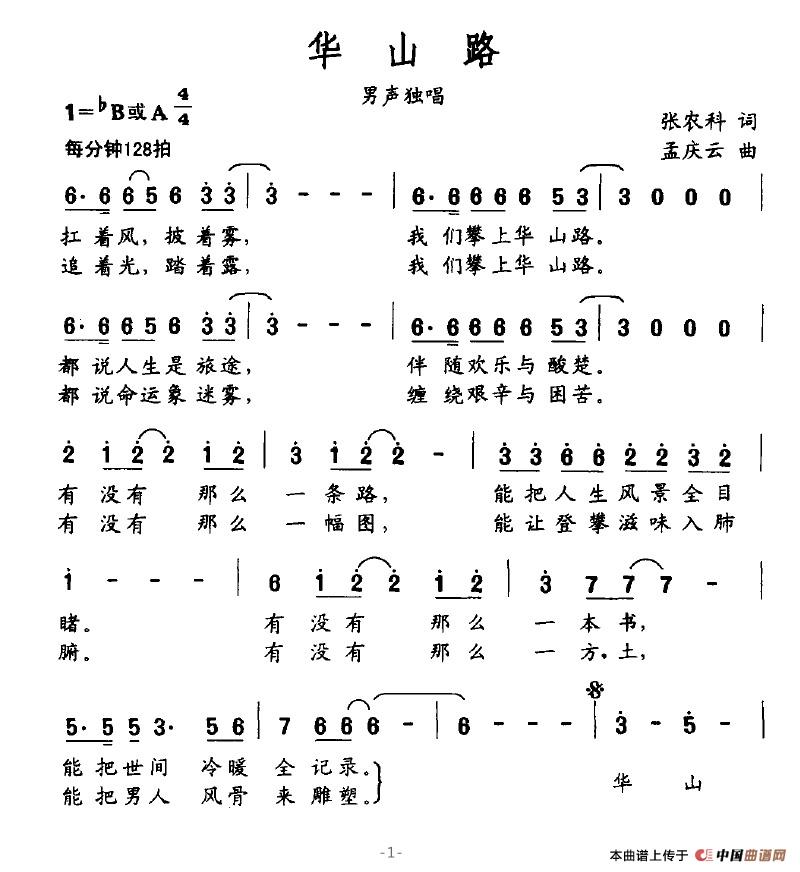 华 山 路
男声独唱
1=♭B或A 4/4
每分钟128拍
张农科 词
孟庆云 曲
6· 6 6 5 6 3 3 | 3 - - - | 6· 6 6 6 6 5 3 | 3 0 0 0 |
扛着风，披着雾， 我们攀上华山路。
追着光，踏着露， 我们攀上华山路。
6· 6 6 6 5 6 3 3 | 3 - - - | 6· 6 6 6 6 5 3 | 3 0 0 0 |
都说人生是旅途， 伴随欢乐与酸楚。
都说命运象迷雾， 缠绕艰辛与困苦。
2 1 2 2 1 2 | 3 1 2 2 - | 3 3 6 6 2 2 3 2 |
有没有那么一条路， 能把人生风景全目
有没有那么一幅图， 能让登攀滋味入肺
1 - - - | 6 1 2 2 1 2 | 3 7 7 7 - |
睹。 有没有那么一本书，
腑。 有没有那么一方土，
5· 5 5 3· 5 6 | 7 6 6 6 - | 6 - - | 3 - 5 - |
能把世间冷暖全记录。 华 山
能把男人风骨来雕塑。
-1-
本曲谱上传于 中国曲谱网